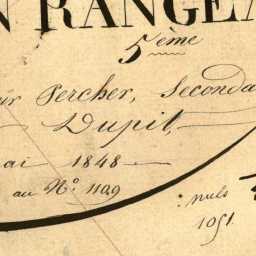 N RANGEM
5ème
ir Percher, Seconda
Dupit,
ai 1848
au No. 1109
nuls
1051.